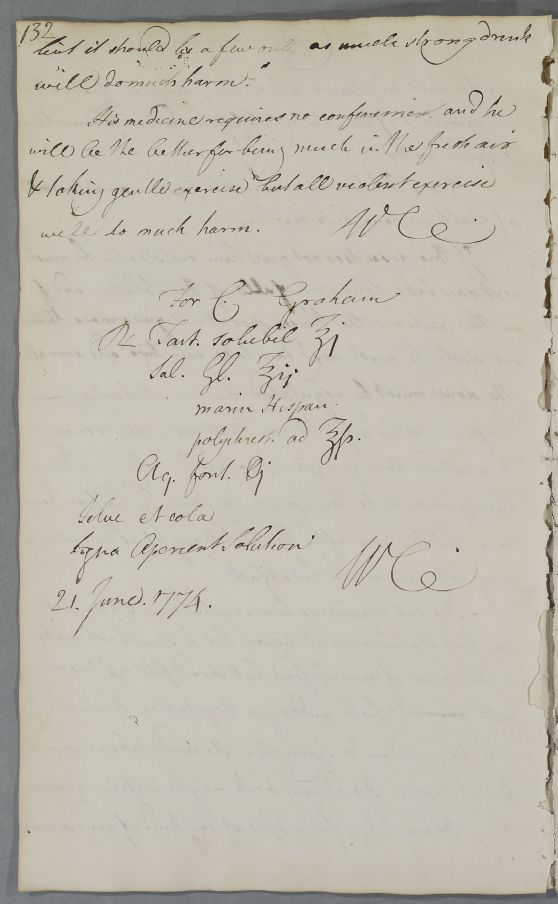 132
but it should be a few only as much strong drink
will do much harm.
His medicine requires no confinement and he
will be the better for being much in the fresh air
& taking gentle exercise but all violent exercise
will do much harm.
WC
For C. Graham
℞ Tart. solubil ʒj
Sal. Gl. ʒij
marin Hispan.
polychrest. ad ʒſs.
Aq. font. ℔j
Solve et cola
Signa Aperient Solution
WC
21. June. 1774.